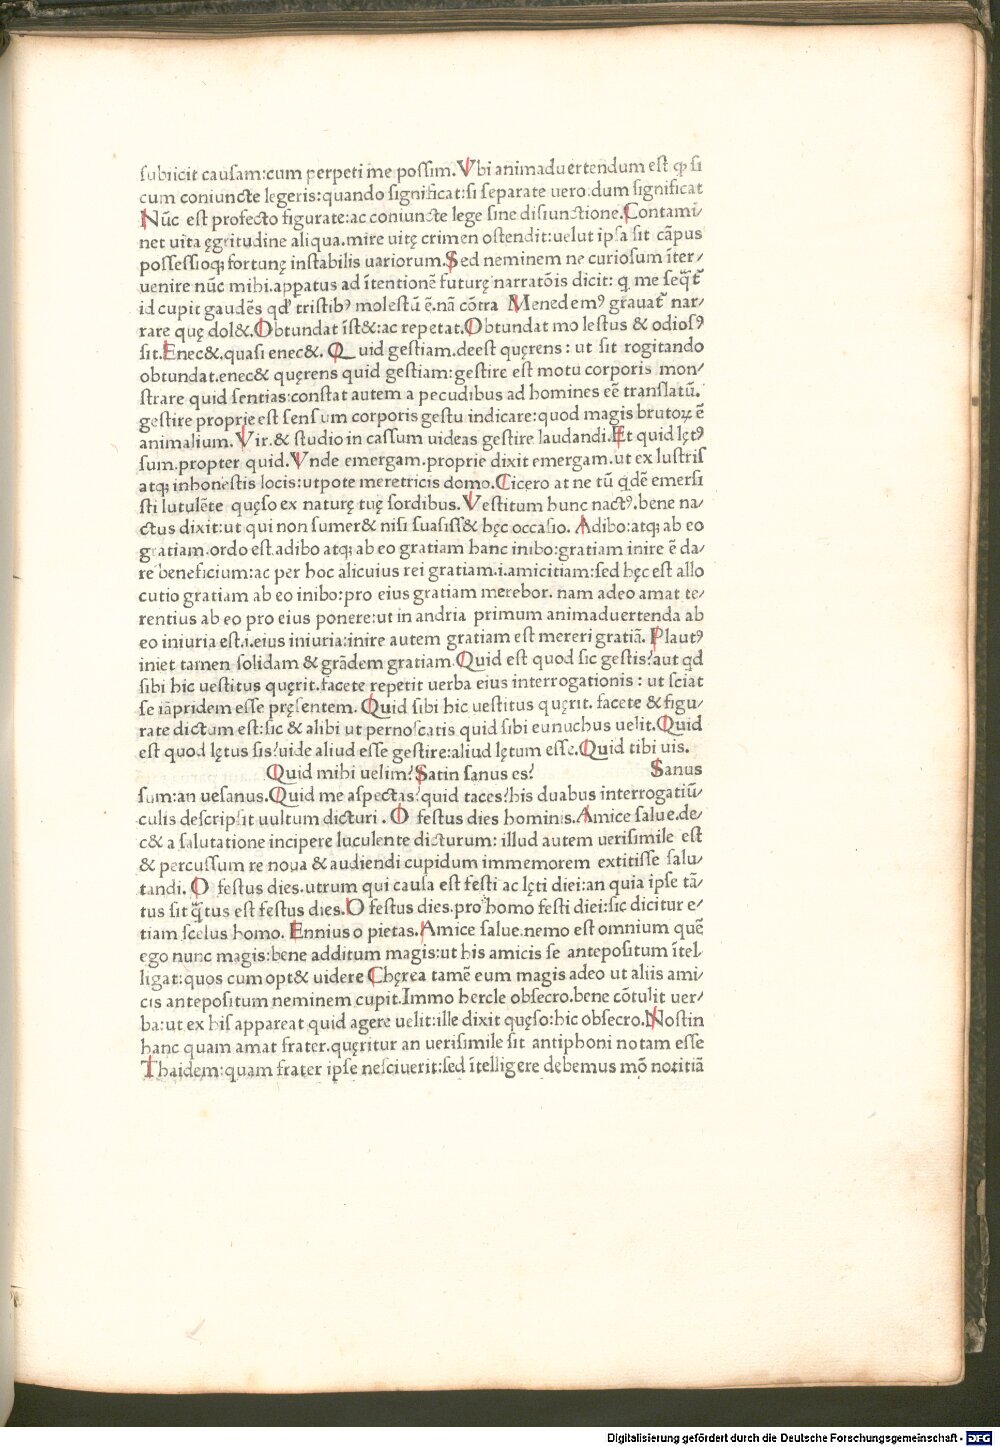 subiicit causam:cum perpeti me possim.Vbi animaduertendum est ꝙ si
cum coniuncte legeris:quando significat:si separate uero:dum significat
Nũc est profecto figurate:ac coniuncte lege sine disiunctione.Contami/
net uita ęgritudine aliqua.mire uitę crimen ostendit:uelut ipsa sit cãpus
possessioq; fortunę instabilis uariorum.Sed neminem ne curiosum ĩter/
uenire nũc mihi.apparus ad ĩtentionẽ futurę narratõis dicit: q me seq̃t̃
id cupit gaudẽs qd' tristibꝰ molestũ ẽ.nã cõtra Menedemꝰ grauat̃ nar/
rare quę dol&.Obtundat ĩst&:ac repetat.Obtundat molestus & odiosꝰ
sit.Enec&.quasi enec&. Quid gestiam.deest quęrens: ut sit rogitando
obtundat.enec& quęrens quid gestiam:gestire est motu corporis mon/
strare quid sentias:constat autem a pecudibus ad homines eẽ translatũ.
gestire proprie est sensum corporis gestu indicare:quod magis brutoꝝ ẽ
animalium.Vir.& studio in cassum uideas gestire laudandi.Et quid lętꝰ
sum.propter quid.Vnde emergam.proprie dixit emergam.ut ex lustris
atq; inhonestis locis:utpote meretricis domo.Cicero at ne tũ qdẽ emersi
sti lutulẽte quęso ex naturę tuę sordibus.Vestitum hunc nactꝰ.bene na/
ctus dixit:ut qui non sumer& nisi suasiss& hęc occasio. Adibo:atq; ab eo
gratiam.ordo est.adibo atq; ab eo gratiam hanc inibo:gratiam inire ẽ da/
re beneficium:ac per hoc alicuius rei gratiam.i.amicitiam:sed hęc est allo
cutio gratiam ab eo inibo:pro eius gratiam merebor. nam adeo amat te/
rentius ab eo pro eius ponere:ut in andria primum animaduertenda ab
eo iniuria est.i.eius iniuria:inire autem gratiam est mereri gratiã. Plautꝰ
iniet tamen solidam & grãdem gratiam.Quid est quod sic gestis?aut qd
sibi hic uestitus quęrit.facete repetit uerba eius interrogationis: ut sciat
se iãpridem esse pręsentem. Quid sibi hic uestitus quęrit. facete & figu/
rate dictum est:sic & alibi ut pernoscatis quid sibi eunuchus uelit.Quid
est quod lętus sis?uide aliud esse gestire:aliud lętum esse.Quid tibi uis.
Quid mihi uelim?Satin sanus es? Sanus
sum:an uesanus.Quid me aspectas?quid taces?his duabus interrogatiũ/
culis descripsit uultum dicturi. O festus dies hominis.Amice salue.de/
c& a salutatione incipere luculente dicturum: illud autem uerisimile est
& percussum re noua & audiendi cupidum immemorem extitisse salu/
tandi. O festus dies.utrum qui causa est festi ac lęti diei:an quia ipse tã/
tus sit q̃tus est festus dies.O festus dies.pro homo festi diei:sic dicitur e/
tiam scelus homo. Ennius o pietas.Amice salue.nemo est omnium quẽ
ego nunc magis:bene additum magis:ut his amicis se antepositum ĩtel/
ligat:quos cum opt& uidere Chęrea tamẽ eum magis adeo ut aliis ami/
cis antepositum neminem cupit.Immo hercle obsecro.bene cõtulit uer/
ba:ut ex his appareat quid agere uelit:ille dixit quęso:hic obsecro.Nostin
hanc quam amat frater.quęritur an uerisimile sit antiphoni notam esse
Thaidem:quam frater ipse nesciuerit:sed ĩtelligere debemus mõ notitiã
Digitalisierung gefördert durch die Deutsche Forschungsgemeinschaft - DFG